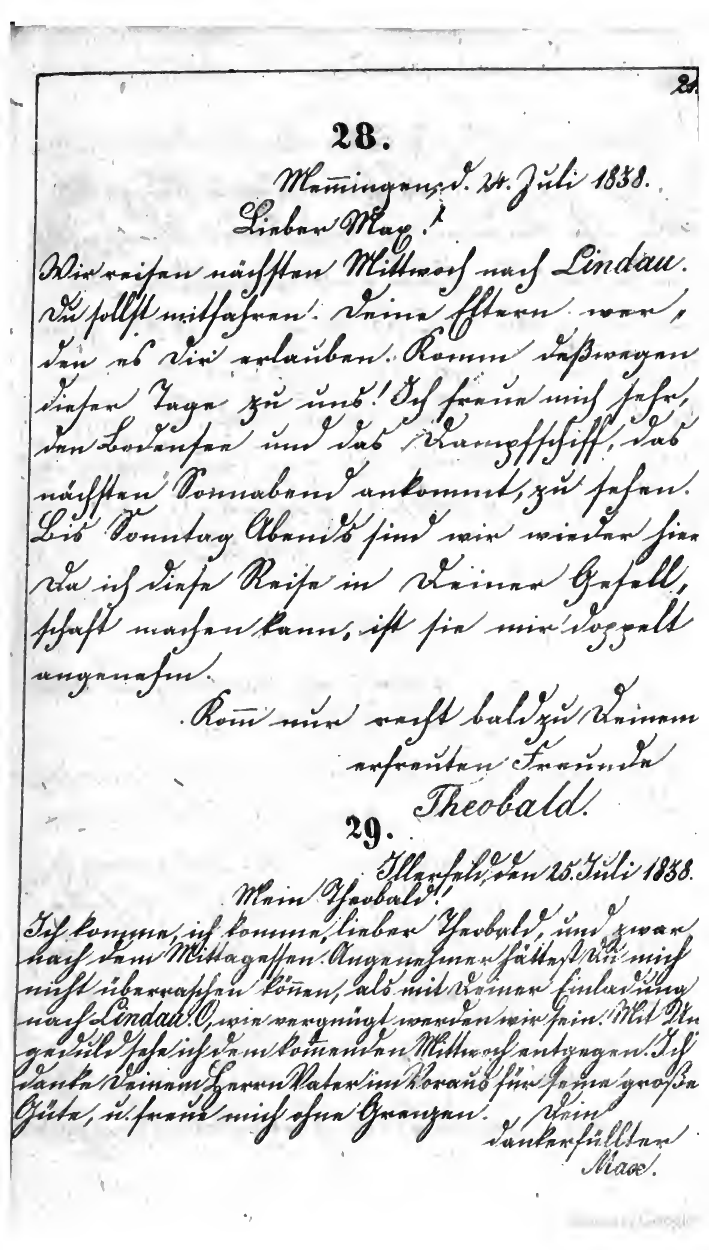 21.
28.
Memmingen, d. 24. Juli 1838.
Lieber Max!
Wir reisen nächsten Mittwoch nach Lindau.
Du sollst mitfahren. Deine Eltern wer„
den es Dir erlauben. Komm deßwegen
dieser Tage zu uns! Ich freue mich sehr,
den Bodensee und das Dampfschiff, das
nächsten Sonnabend ankommt, zu sehen.
Bis Sonntag Abends sind wir wieder hier
Da ich diese Reise in Deiner Gesell„
schaft machen kann, ist sie mir doppelt
angenehm.
Kom̅ nur recht bald zu Deinem
erfreuten Freunde
Theobald.
29.
Illerfeld, den 25. Juli 1838.
Mein Theobald!
Ich komme, ich komme, lieber Theobald, und zwar
nach dem Mittagessen. Angenehmer hättest Du mich
nicht überraschen kön̅en, als mit Deiner Einladung
nach Lindau. O, wie vergnügt werden wir sein! Mit Un
geduld sehe ich dem kom̅enden Mittwoch entgegen. Ich
danke Deinem Herrn Vater im Voraus für seine große
Güte, u. freue mich ohne Grenzen. Dein
dankerfüllter
Max.